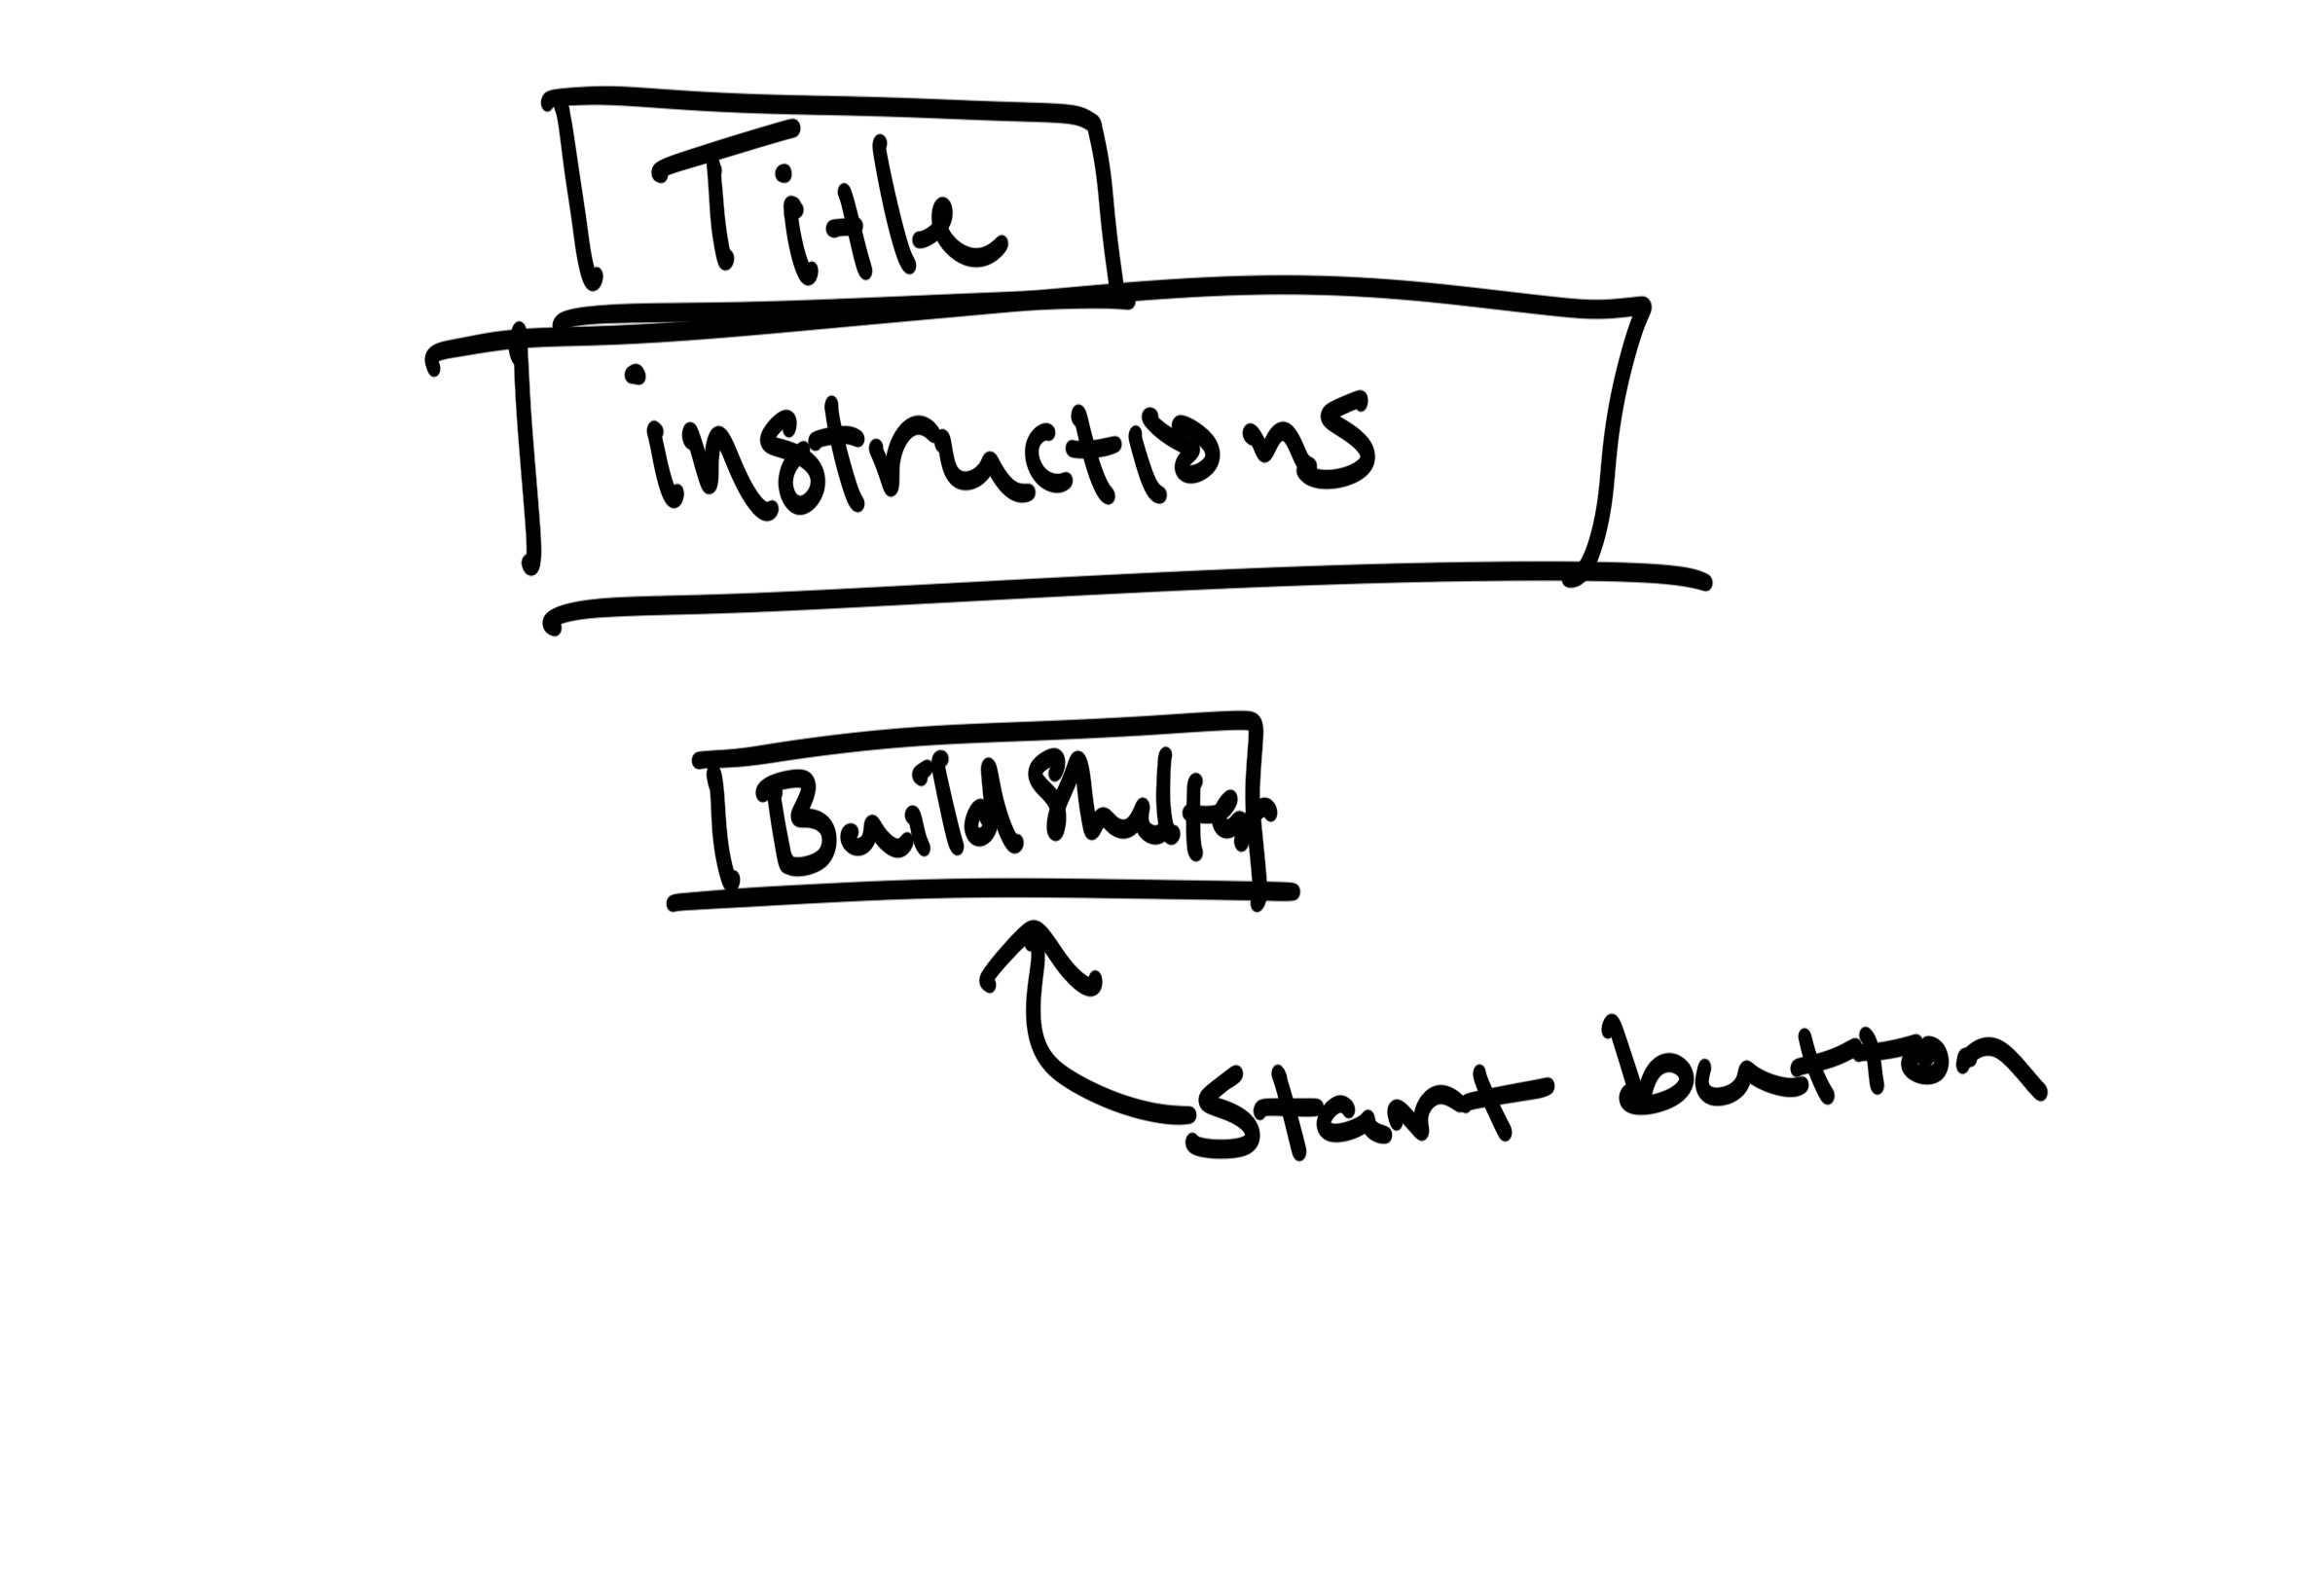 Title
instructions
Build Shelter
Start button